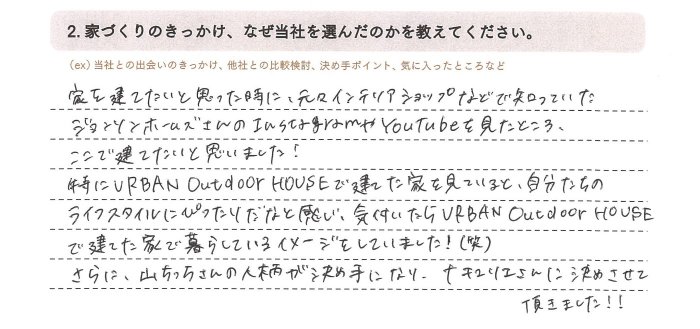 2. 家づくりのきっかけ、なぜ当社を選んだのかを教えてください。
（ex）当社との出会いのきっかけ、他社との比較検討、決め手ポイント、気に入ったところなど
家を建てたいと思った時に、元々インテリアショップなどで知っていた
ジョンソンホームズさんのInstagramやYoutubeを見たところ、
ここで建てたいと思いました！
特にURBAN Outdoor HOUSEで建てた家を見ていると、自分たちの
ライフスタイルにぴったりだなと感じ、気付いたらURBAN Outdoor HOUSE
で建てた家で暮らしているイメージをしていました！(笑)
さらに、山ちっちさんの人柄が決め手になり、ナチュリエさんに決めさせて
頂きました！！